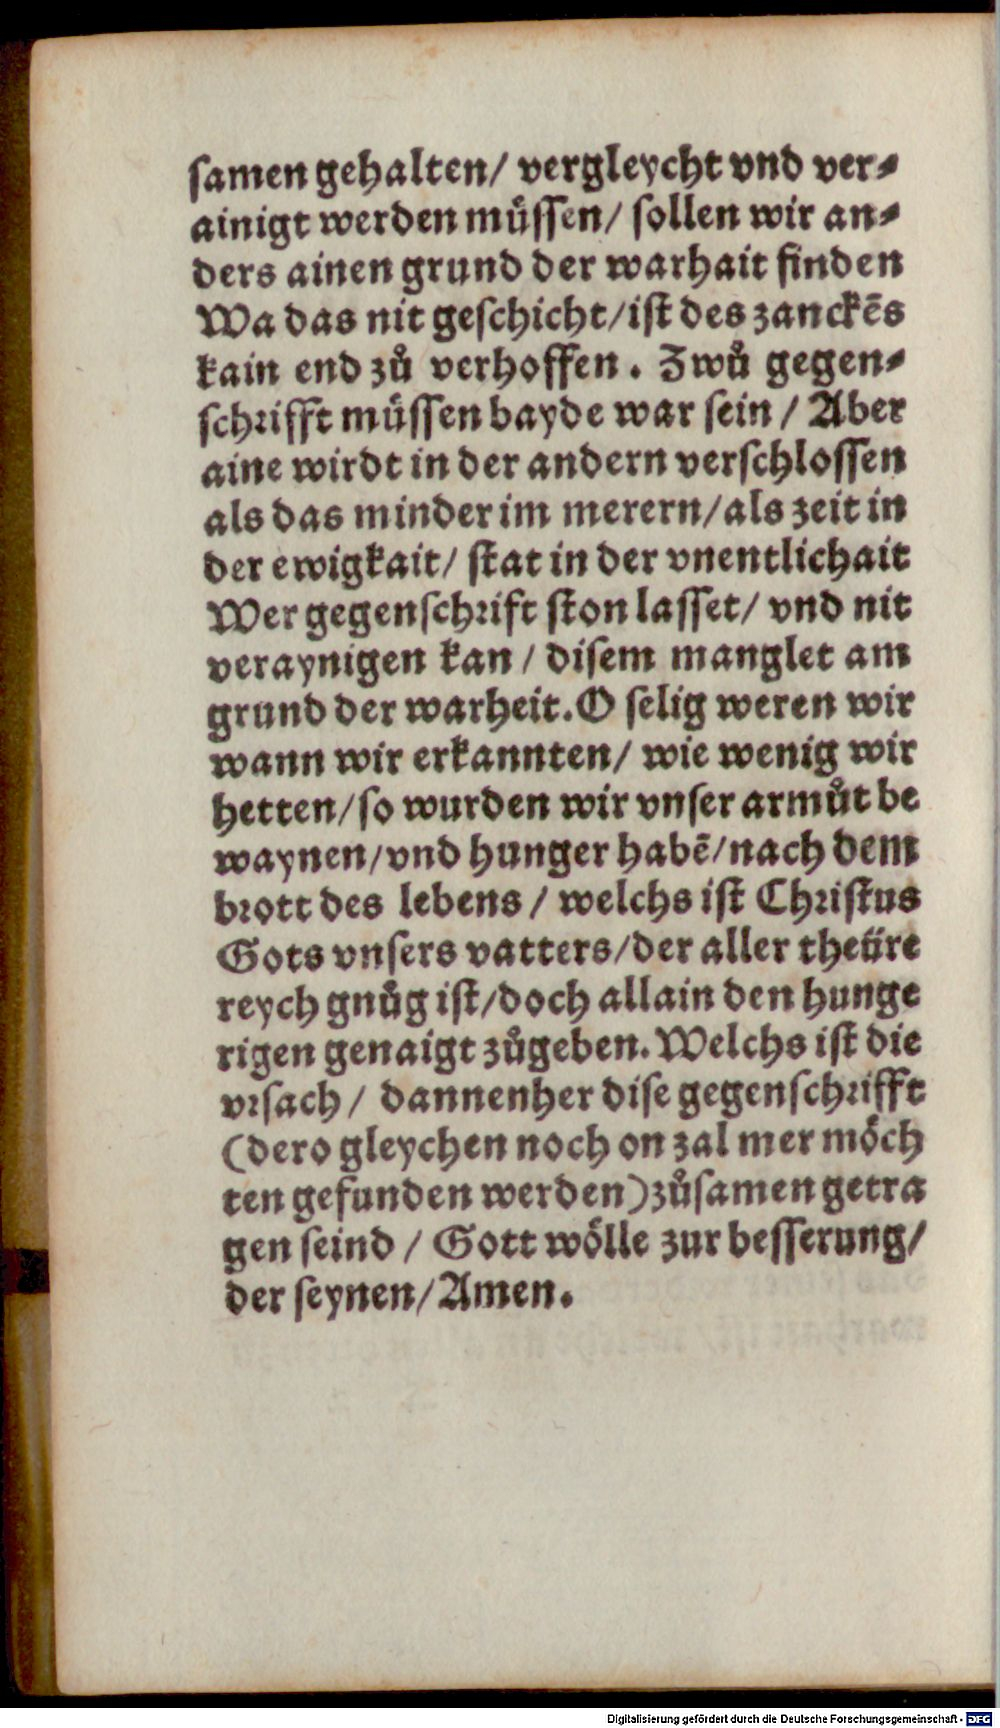 samen gehalten/ vergleycht vnd ver⸗
ainigt werden muͤssen/ sollen wir an⸗
ders ainen grund der warhait finden
Wa das nit geschicht/ist des zanckēs
kain end zuͦ verhoffen. Zwuͦ gegen⸗
schrifft muͤssen bayde war sein / Aber
aine wirdt in der andern verschlossen
als das minder im merern/als zeit in
der ewigkait/ stat in der vnentlichait
Wer gegenschrift ston lasset/ vnd nit
veraynigen kan / disem manglet am
grund der warheit. O selig weren wir
wann wir erkannten/ wie wenig wir
hetten/so wurden wir vnser armuͦt be
waynen/vnd hunger habē/nach dem
brott des lebens / welchs ist Christus
Gots vnsers vatters/der aller theüre
reych gnuͦg ist/doch allain den hunge
rigen genaigt zuͦgeben. Welchs ist die
vrsach / dannenher dise gegenschrifft
(dero gleychen noch on zal mer moͤch
ten gefunden werden)zuͦsamen getra
gen seind / Gott woͤlle zur besserung/
der seynen/Amen.
Digitalisierung gefördert durch die Deutsche Forschungsgemeinschaft - DFG